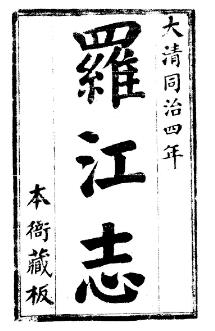 大清同治四年
羅江志
本衙藏板